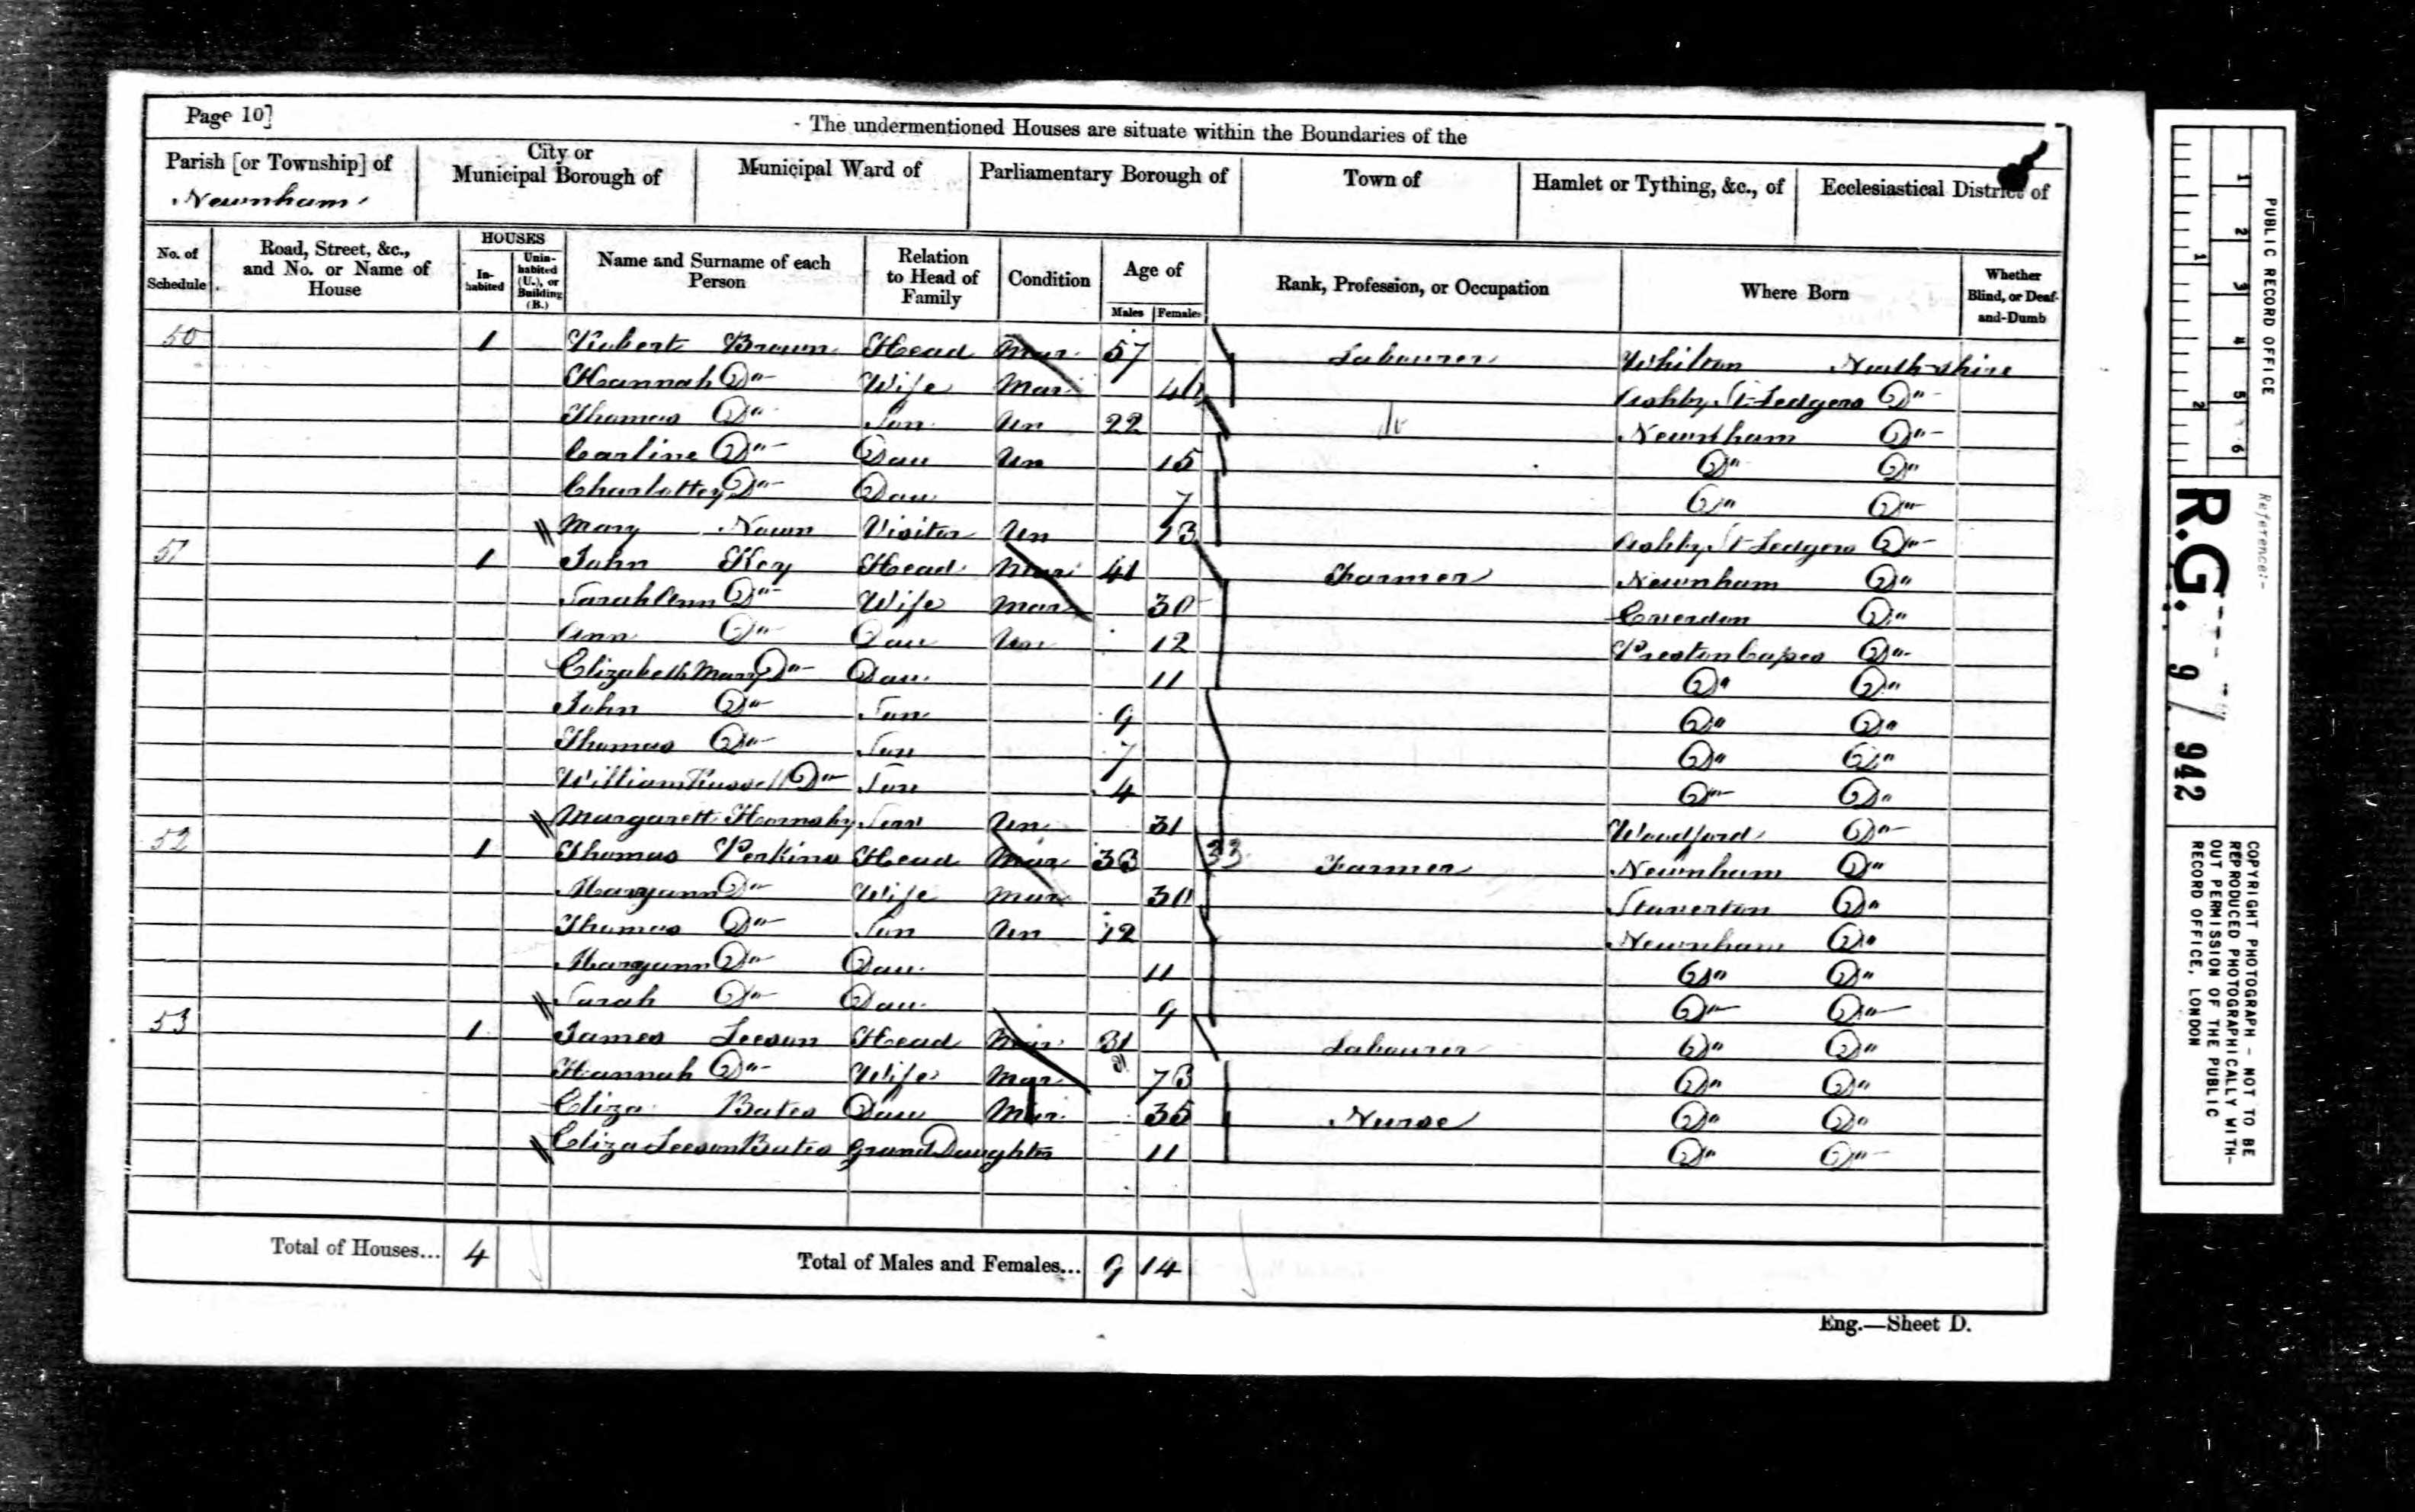 Page 10]
- The undermentioned Houses are situate within the Boundaries of the
Parish [or Township] of City or Municipal Borough of Municipal Ward of Parliamentary Borough of Town of Hamlet or Tything, &c., of Ecclesiastical District of
Newnham
No. of Schedule Road, Street, &c., and No. or Name of House HOUSES In-habited Unin-habited (U.), or Building (B.) Name and Surname of each Person Relation to Head of Family Condition Age of Males Females Rank, Profession, or Occupation Where Born Whether Blind, or Deaf-and-Dumb
50 1 Robert Brown Head Mar 57 Labourer Whilton North-shire
Hannah Do Wife Mar Ashby St Ledgers Do
Thomas Do Son Un 22 Newnham Do
Carline Do Dau Un 15 Do Do
Charlottey Do Dau 7 Do Do
Mary Visitor Un Ashby St Ledgers Do
51 1 John Key Head Mar 41 Farmer Newnham Do
Sarah Ann Do Wife Mar 30 Everdon Do
Ann Do Dau Un 12 Preston Capes Do
Elizabeth Mary Do Dau 11 Do Do
John Do Son 9 Do Do
Thomas Do Son 7 Do Do
William Russell Do Son 4 Do Do
Margarett Hornsby Serv Un 31 Woodford Do
52 1 Thomas Perkins Head Mar 33 33 Farmer Newnham Do
Maryann Do Wife Mar Staverton Do
Thomas Do Son Un 12 Newnham Do
Maryann Do Dau 11 Do Do
Sarah Do Dau 9 Do Do
53 1 James Leeson Head Mar Labourer Do Do
Hannah Do Wife Mar 73 Do Do
Eliza Bates Dau Mar 35 Nurse Do Do
Eliza Leeson Bates Grand Daughter 11 Do Do
Total of Houses... 4 Total of Males and Females... 9 14
Eng.—Sheet D.
PUBLIC RECORD OFFICE
1 2 3 4 5 6
1 2
Reference:-
R.G. 9/942
COPYRIGHT PHOTOGRAPH - NOT TO BE
REPRODUCED PHOTOGRAPHICALLY WITH-
OUT PERMISSION OF THE PUBLIC
RECORD OFFICE, LONDON